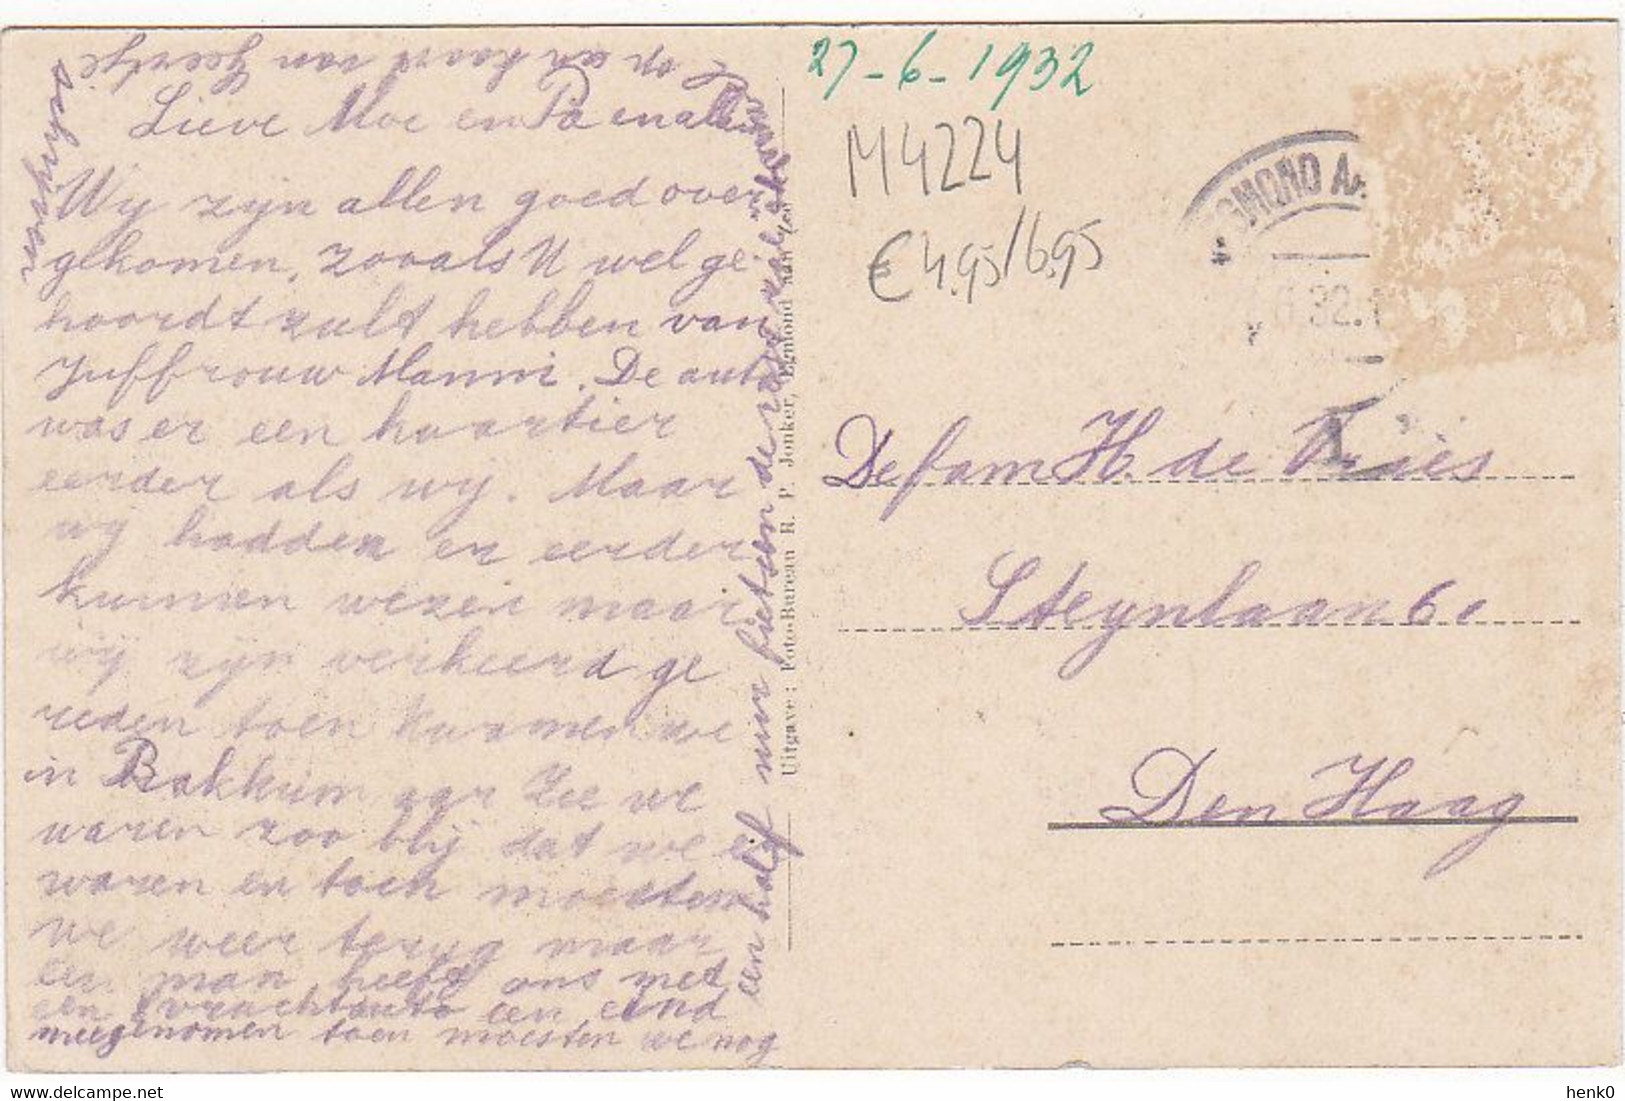 Lieve Moe en Pa en allen
Wij zijn allen goed over
gekomen, zooals U wel ge-
hoordt zult hebben van
Juffrouw Manni. De auto
was er een kwartier
eerder als wij. Maar
wij hadden er eerder
kunnen wezen maar
wij zijn verkeerd ge
reden toen kwamen we
in Bakkum aan Zee we
waren zoo blij dat we er
waren en toen moesten
we weer terug maar
een man heeft ons met
een vrachtauto een eind
meegenomen toen moesten we nog
een half uur fietsen de
op een kaart van Geertje
schrijven
Uitgave: Foto-Bureau R. P. Jonker, Egmond aan Zee
27-6-1932
M4224
€ 4,95/6,95
GMOND A
6.32.1
De fam H. de Vries
Steynlaan 61
Den Haag
henk0